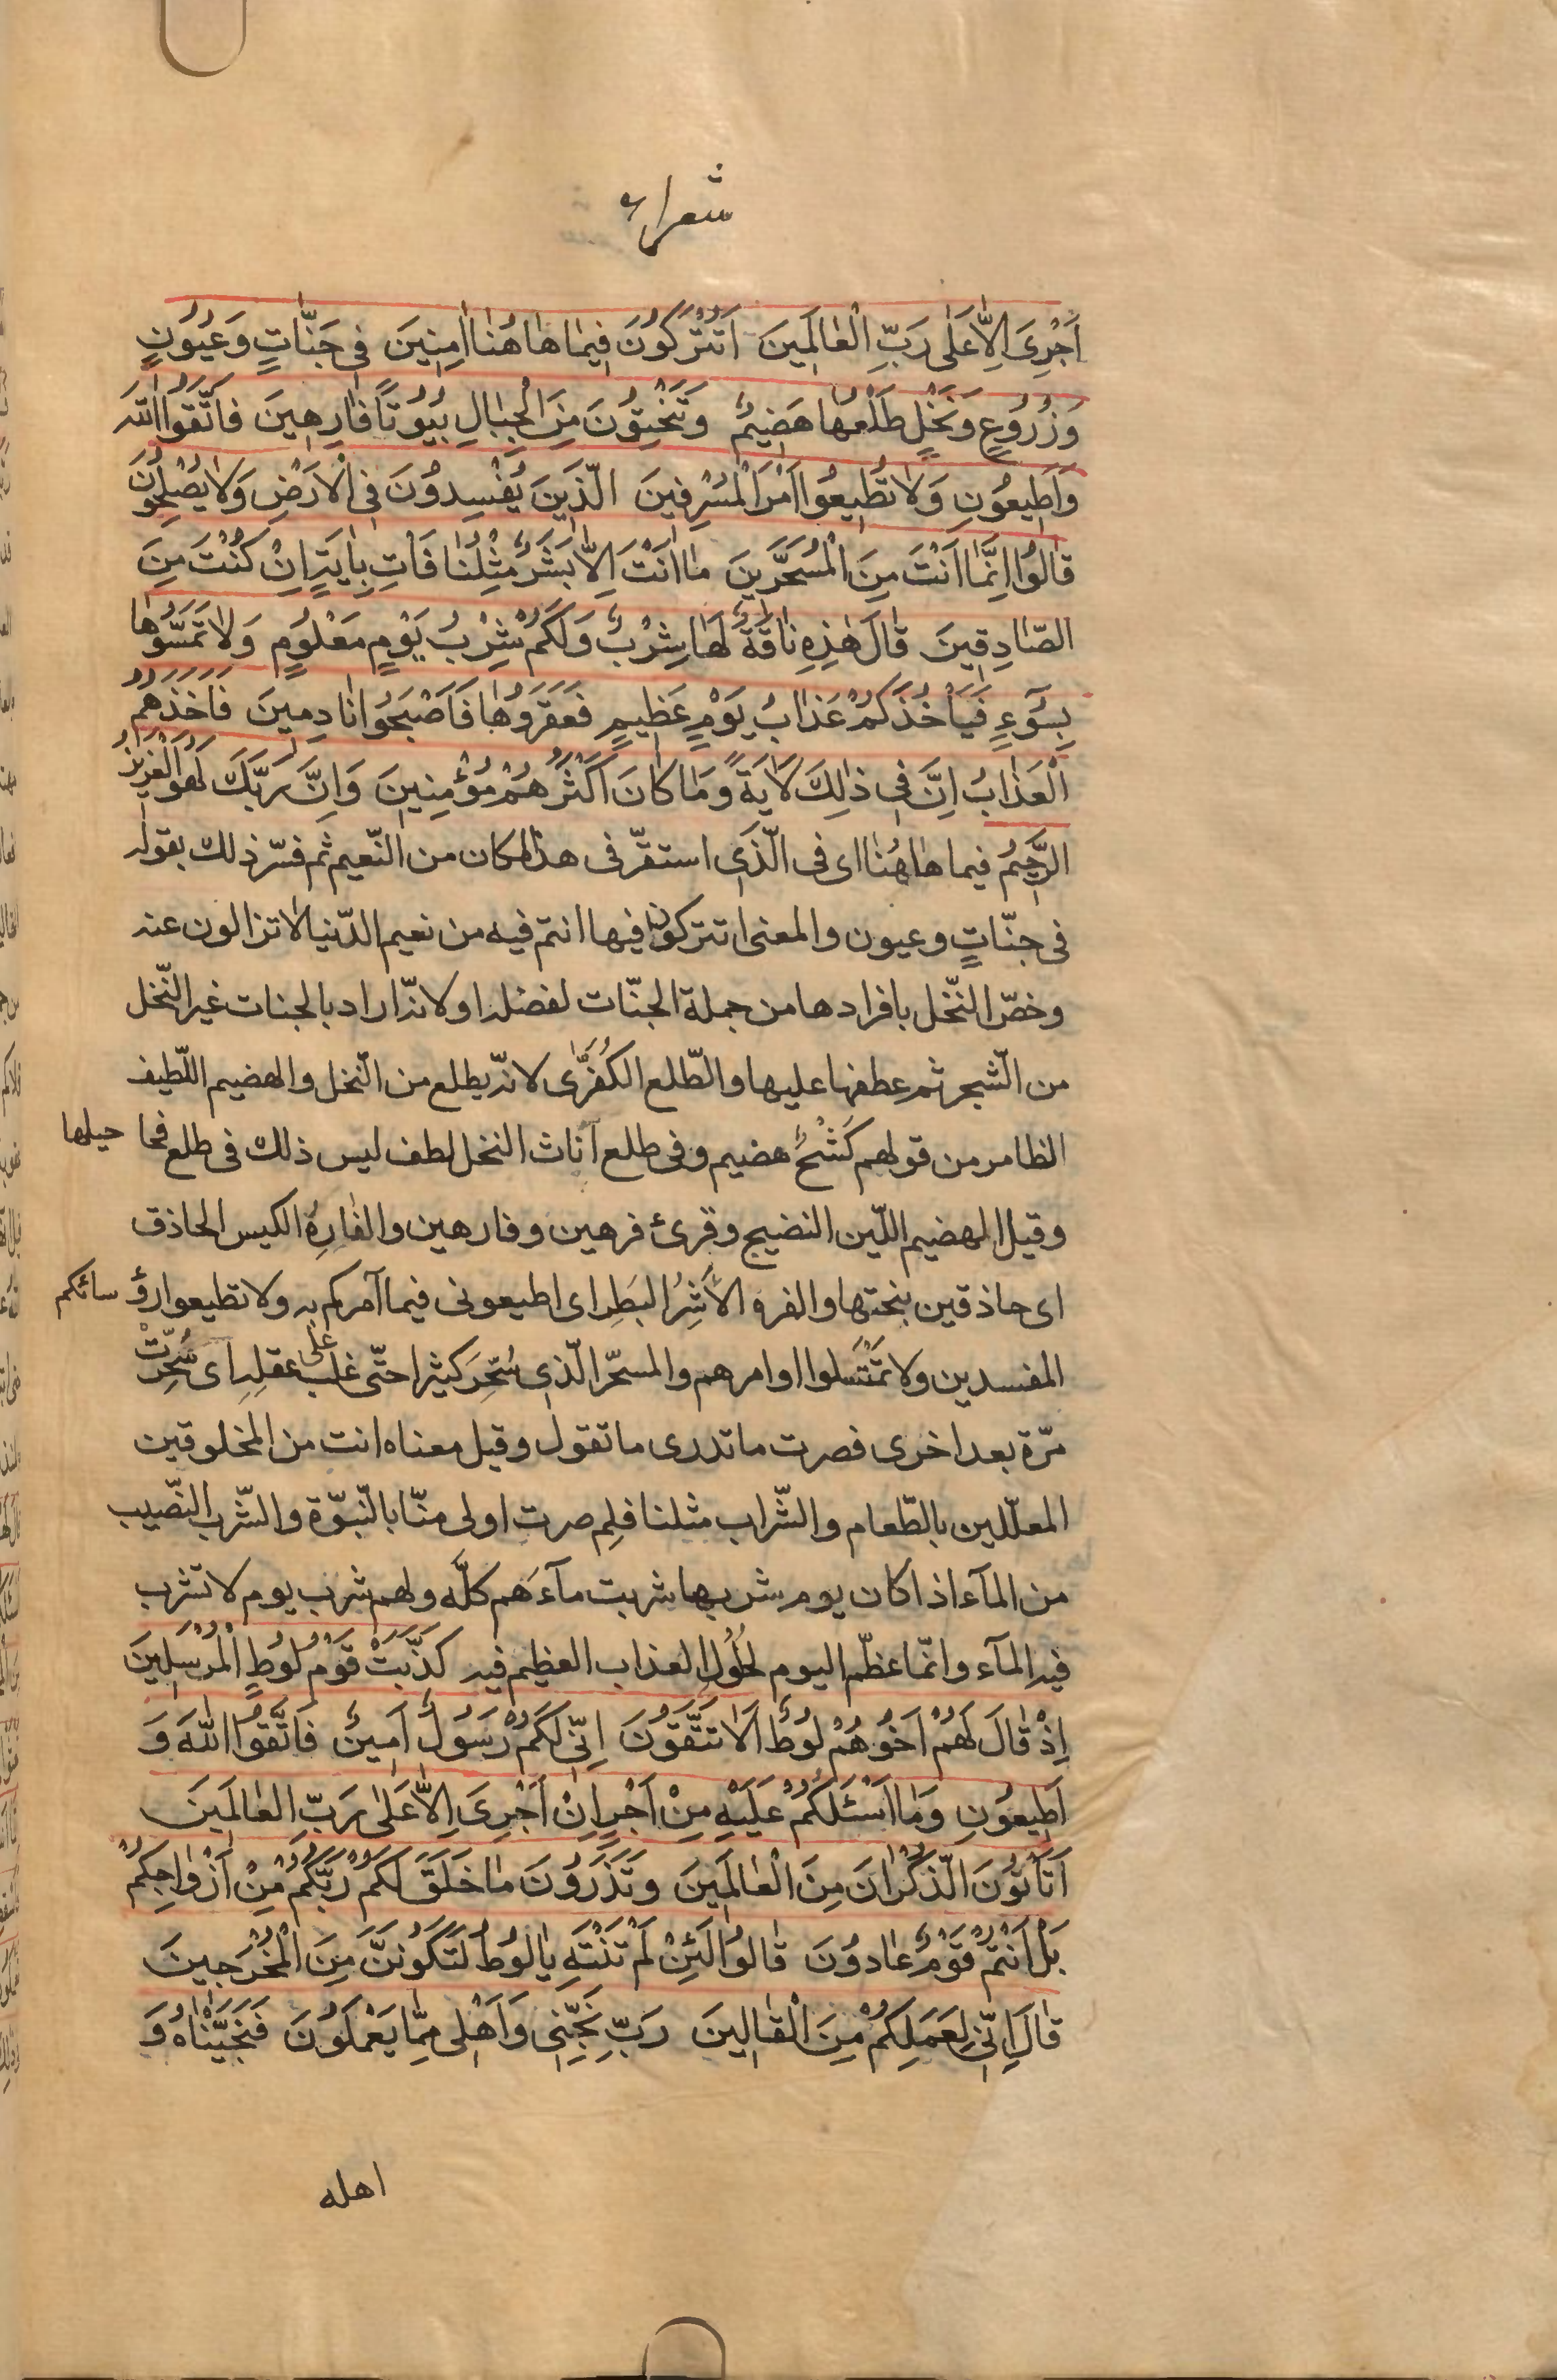 شعراء
اَجْرِىَ اِلاّٰ عَلٰى رَبِّ الْعٰالَمِينَ اَتُتْرَكُونَ فِيمٰا هٰا هُنٰا اٰمِنِينَ فِى جَنّٰاتٍ وَعُيُونٍ
وَزُرُوعٍ وَنَخْلٍ طَلْعُهٰا هَضِيمٌ وَتَنْحِتُونَ مِنَ الْجِبٰالِ بُيُوتًا فٰارِهِينَ فَاتَّقُوا اللّٰهَ
وَاَطِيعُونِ وَلاٰ تُطِيعُوا اَمْرَ الْمُسْرِفِينَ الَّذِينَ يُفْسِدُونَ فِى الْاَرْضِ وَلاٰ يُصْلِحُونَ
قٰالُوا اِنَّمٰا اَنْتَ مِنَ الْمُسَحَّرِينَ مٰا اَنْتَ اِلاّٰ بَشَرٌ مِثْلُنٰا فَاْتِ بِاٰيَةٍ اِنْ كُنْتَ مِنَ
الصّٰادِقِينَ قٰالَ هٰذِهِ نٰاقَةٌ لَهٰا شِرْبٌ وَلَكُمْ شِرْبُ يَوْمٍ مَعْلُومٍ وَلاٰ تَمَسُّوهٰا
بِسُوٓءٍ فَيَاْخُذَكُمْ عَذٰابُ يَوْمٍ عَظِيمٍ فَعَقَرُوهٰا فَاَصْبَحُوا نٰادِمِينَ فَاَخَذَهُمُ
الْعَذٰابُ اِنَّ فِى ذٰلِكَ لَاٰيَةً وَمٰا كٰانَ اَكْثَرُهُمْ مُؤْمِنِينَ وَاِنَّ رَبَّكَ لَهُوَ الْعَزِيزُ
الرَّحِيمُ فيما هٰا هُنٰا اى فى الّذى استقرّ فى هذا المكان من النّعيم ثم فسّر ذلك بقوله
فى جنّاتٍ وعيون والمعنى اتتركون فيها انتم فيه من نعيم الدّنيا لا تزالون عنه
وخصّ النّخل بافرادها من جملة الجنّات لفضله او لانّه اراد بالجنات غير النّخل
من الشّجر ثم عطفها عليها والطّلع الكُفُرّٰى لانّه يطلع من النّخل والهضيم اللّطيف
الظامر من قولهم كَشْحٌ هضيم وفى طلع آناث النخل لطف ليس ذلك فى طلع فحا حيلها
وقيل الهضيم اللّين النضيج وقرئ فرهين وفارهين والفٰارِهُ الكيس الحاذق
اى حاذقين بنحتها والفره الأَشِرُ البَطِر اى اطيعونى فيما آمركم به ولا تطيعوا رؤسائكم
المفسدين ولا تمْتَسلوا اوامرهم والمسحّر الّذى سُحِّرَ كثيرا حتّى غلب على عقله اى سُحِّرْتَ
مرّة بعد اخرى فصرت ما تدرى ما تقول وقيل معناه انت من المخلوقين
المعلّلين بالطّعام والشّراب مثلنا فلِم صرت اولى منّا بالنّبوّة والشّرب النّصيب
من المآء اذا كان يوم شربها شربت مآءَهم كلّه ولهم شرب يوم لا تشرب
فيه المآء وانّما عظّم اليوم لحُلُولِ العذاب العظيم فيه كَذَّبَتْ قَوْمُ لُوطٍ الْمُرْسَلِينَ
اِذْ قٰالَ لَهُمْ اَخُوهُمْ لُوطٌ اَلاٰ تَتَّقُونَ اِنِّى لَكُمْ رَسُولٌ اَمِينٌ فَاتَّقُوا اللّٰهَ وَ
اَطِيعُونِ وَمٰا اَسْئَلُكُمْ عَلَيْهِ مِنْ اَجْرٍ اِنْ اَجْرِىَ اِلاّٰ عَلٰى رَبِّ الْعٰالَمِينَ
اَتَاْتُونَ الذُّكْرٰانَ مِنَ الْعٰالَمِينَ وَتَذَرُونَ مٰا خَلَقَ لَكُمْ رَبُّكُمْ مِنْ اَزْوٰاجِكُمْ
بَلْ اَنْتُمْ قَوْمٌ عٰادُونَ قٰالُوا لَئِنْ لَمْ تَنْتَهِ يٰا لُوطُ لَتَكُونَنَّ مِنَ الْمُخْرَجِينَ
قٰالَ اِنِّى لِعَمَلِكُمْ مِنَ الْقٰالِينَ رَبِّ نَجِّنِى وَاَهْلِى مِمّٰا يَعْمَلُونَ فَنَجَّيْنٰاهُ وَ
اهله